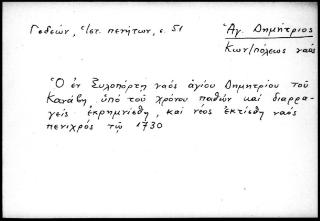 Γεδεών, Ἱστ. πενήτων, σ. 51
Ἁγ. Δημήτριος
Κων/πόλεως ναός
Ὁ ἐν Ξυλοπόρτῃ ναός ἁγίου Δημητρίου τοῦ
Κανάβη ὑπό τοῦ χρόνου παθών καί διαρρα-
γείς ἐκρημνίσθη, καί νέος ἐκτίσθη ναός
πενιχρός τῷ 1730